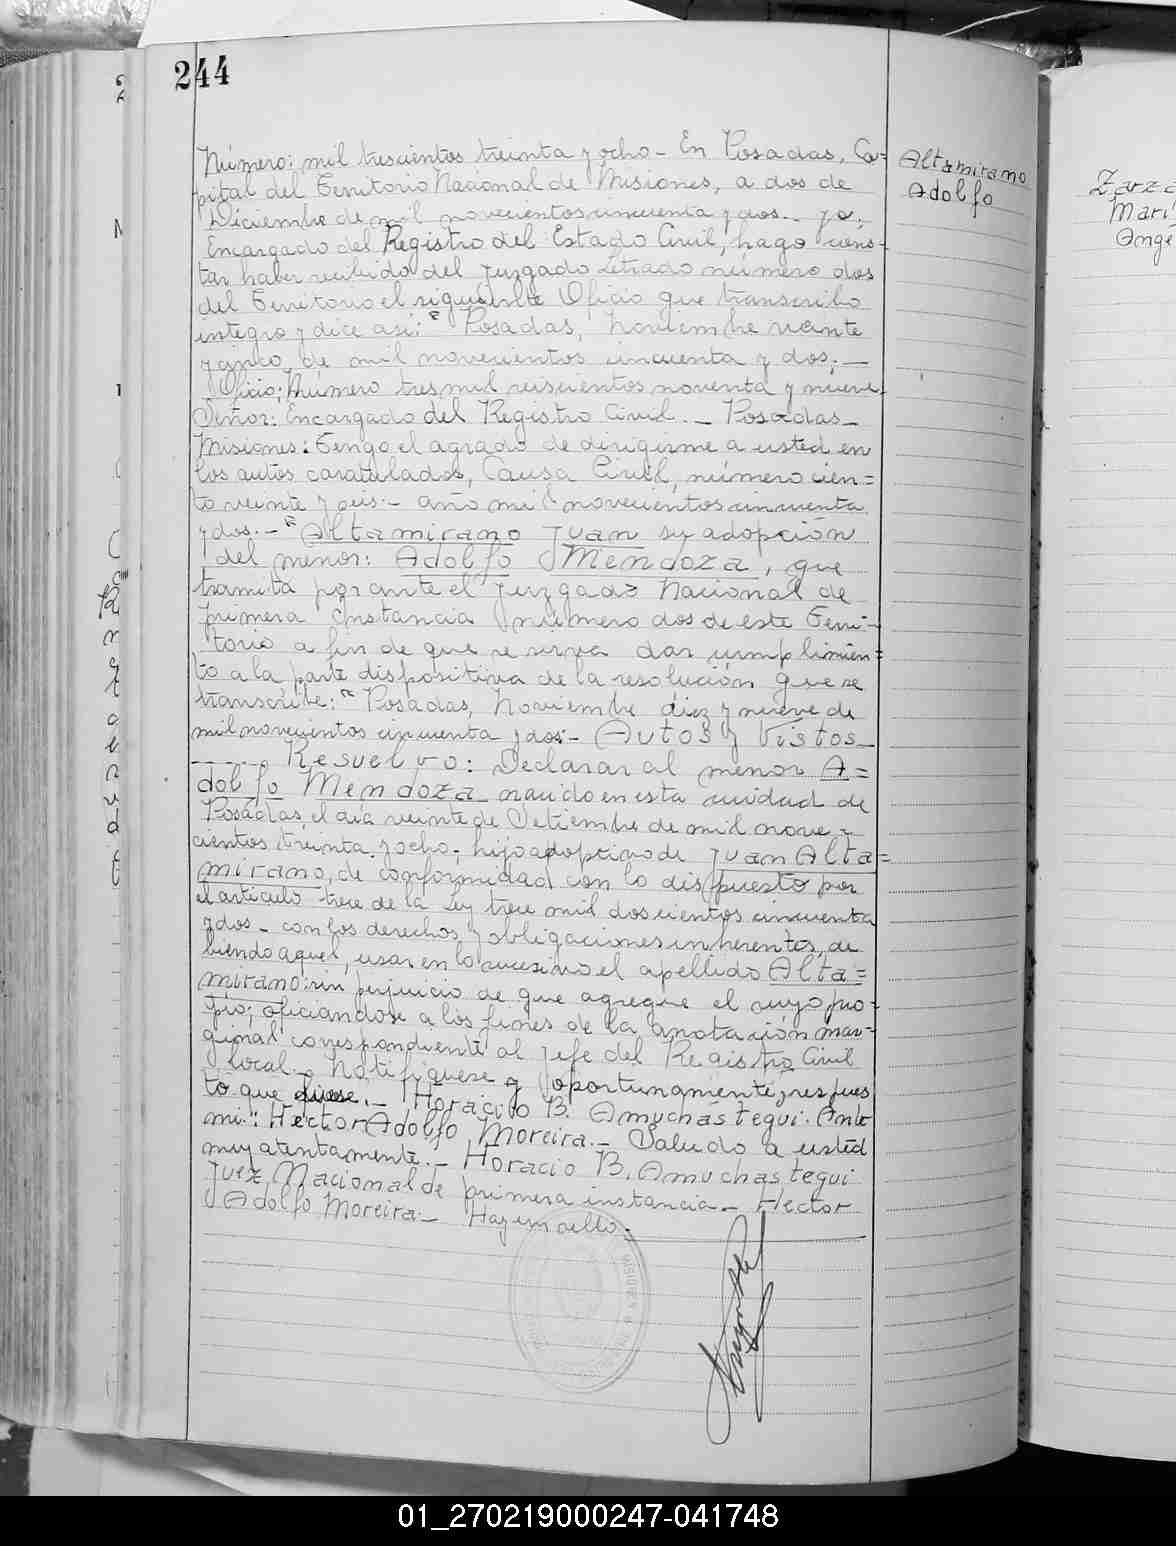 244
Número: mil trescientos treinta y ocho - En Posadas, Ca=
pital del Territorio Nacional de Misiones, a dos de
Diciembre de mil novecientos cincuenta y dos.- yo,
Encargado del Registro del Estado Civil, hago cons-
tar haber recibido del Juzgado Letrado número dos
del Territorio el siguiente Oficio que transcribo
integro y dice asi: " Posadas, Noviembre veinte
y cinco de mil novecientos cincuenta y dos.-
Oficio: Número tres mil seiscientos noventa y nueve
Señor: Encargado del Registro Civil.- Posadas-
Misiones: Tengo el agrado de dirigirme a usted en
los autos caratulados, Causa Civil, número cien=
to veinte y seis.- año mil novecientos cincuenta
y dos.- " Altamirano Juan su adopción
del menor: Adolfo Mendoza, que
tramita por ante el Juzgado Nacional de
primera Instancia número dos de este Terri-
torio a fin de que se sirva dar cumplimien=
to a la parte dispositiva de la resolución que se
transcribe: " Posadas, Noviembre diez y nueve de
mil novecientos cincuenta y dos.- Autos y Vistos-
------. Resuelvo: Declarar al menor A=
dolfo Mendoza nacido en esta ciudad de
Posadas, el día veinte de Setiembre de mil nove-
cientos treinta y ocho, hijo adoptivo de Juan Alta=
mirano, de conformidad con lo dispuesto por
el artículo trece de la Ley trece mil doscientos cincuenta
y dos - con los derechos y obligaciones inherentes, de
biendo aquel, usar en lo sucesivo el apellido Alta=
mirano: sin perjuicio de que agregue el suyo pro-
pio; oficiandose a los fines de la anotación mar-
ginal correspondiente al Jefe del Registro Civil
local.- Notifiquese y oportunamente, respues
to que fuese.- Horacio B. Amuchástegui. Ante
mi: " Hector Adolfo Moreira.- Saludo a usted
muy atentamente.- Horacio B. Amuchastegui
Juez Nacional de primera instancia - Hector
Adolfo Moreira.- Hay un sello.-
Altamirano
Adolfo
Zarza
Mari
Ange
01_270219000247-041748